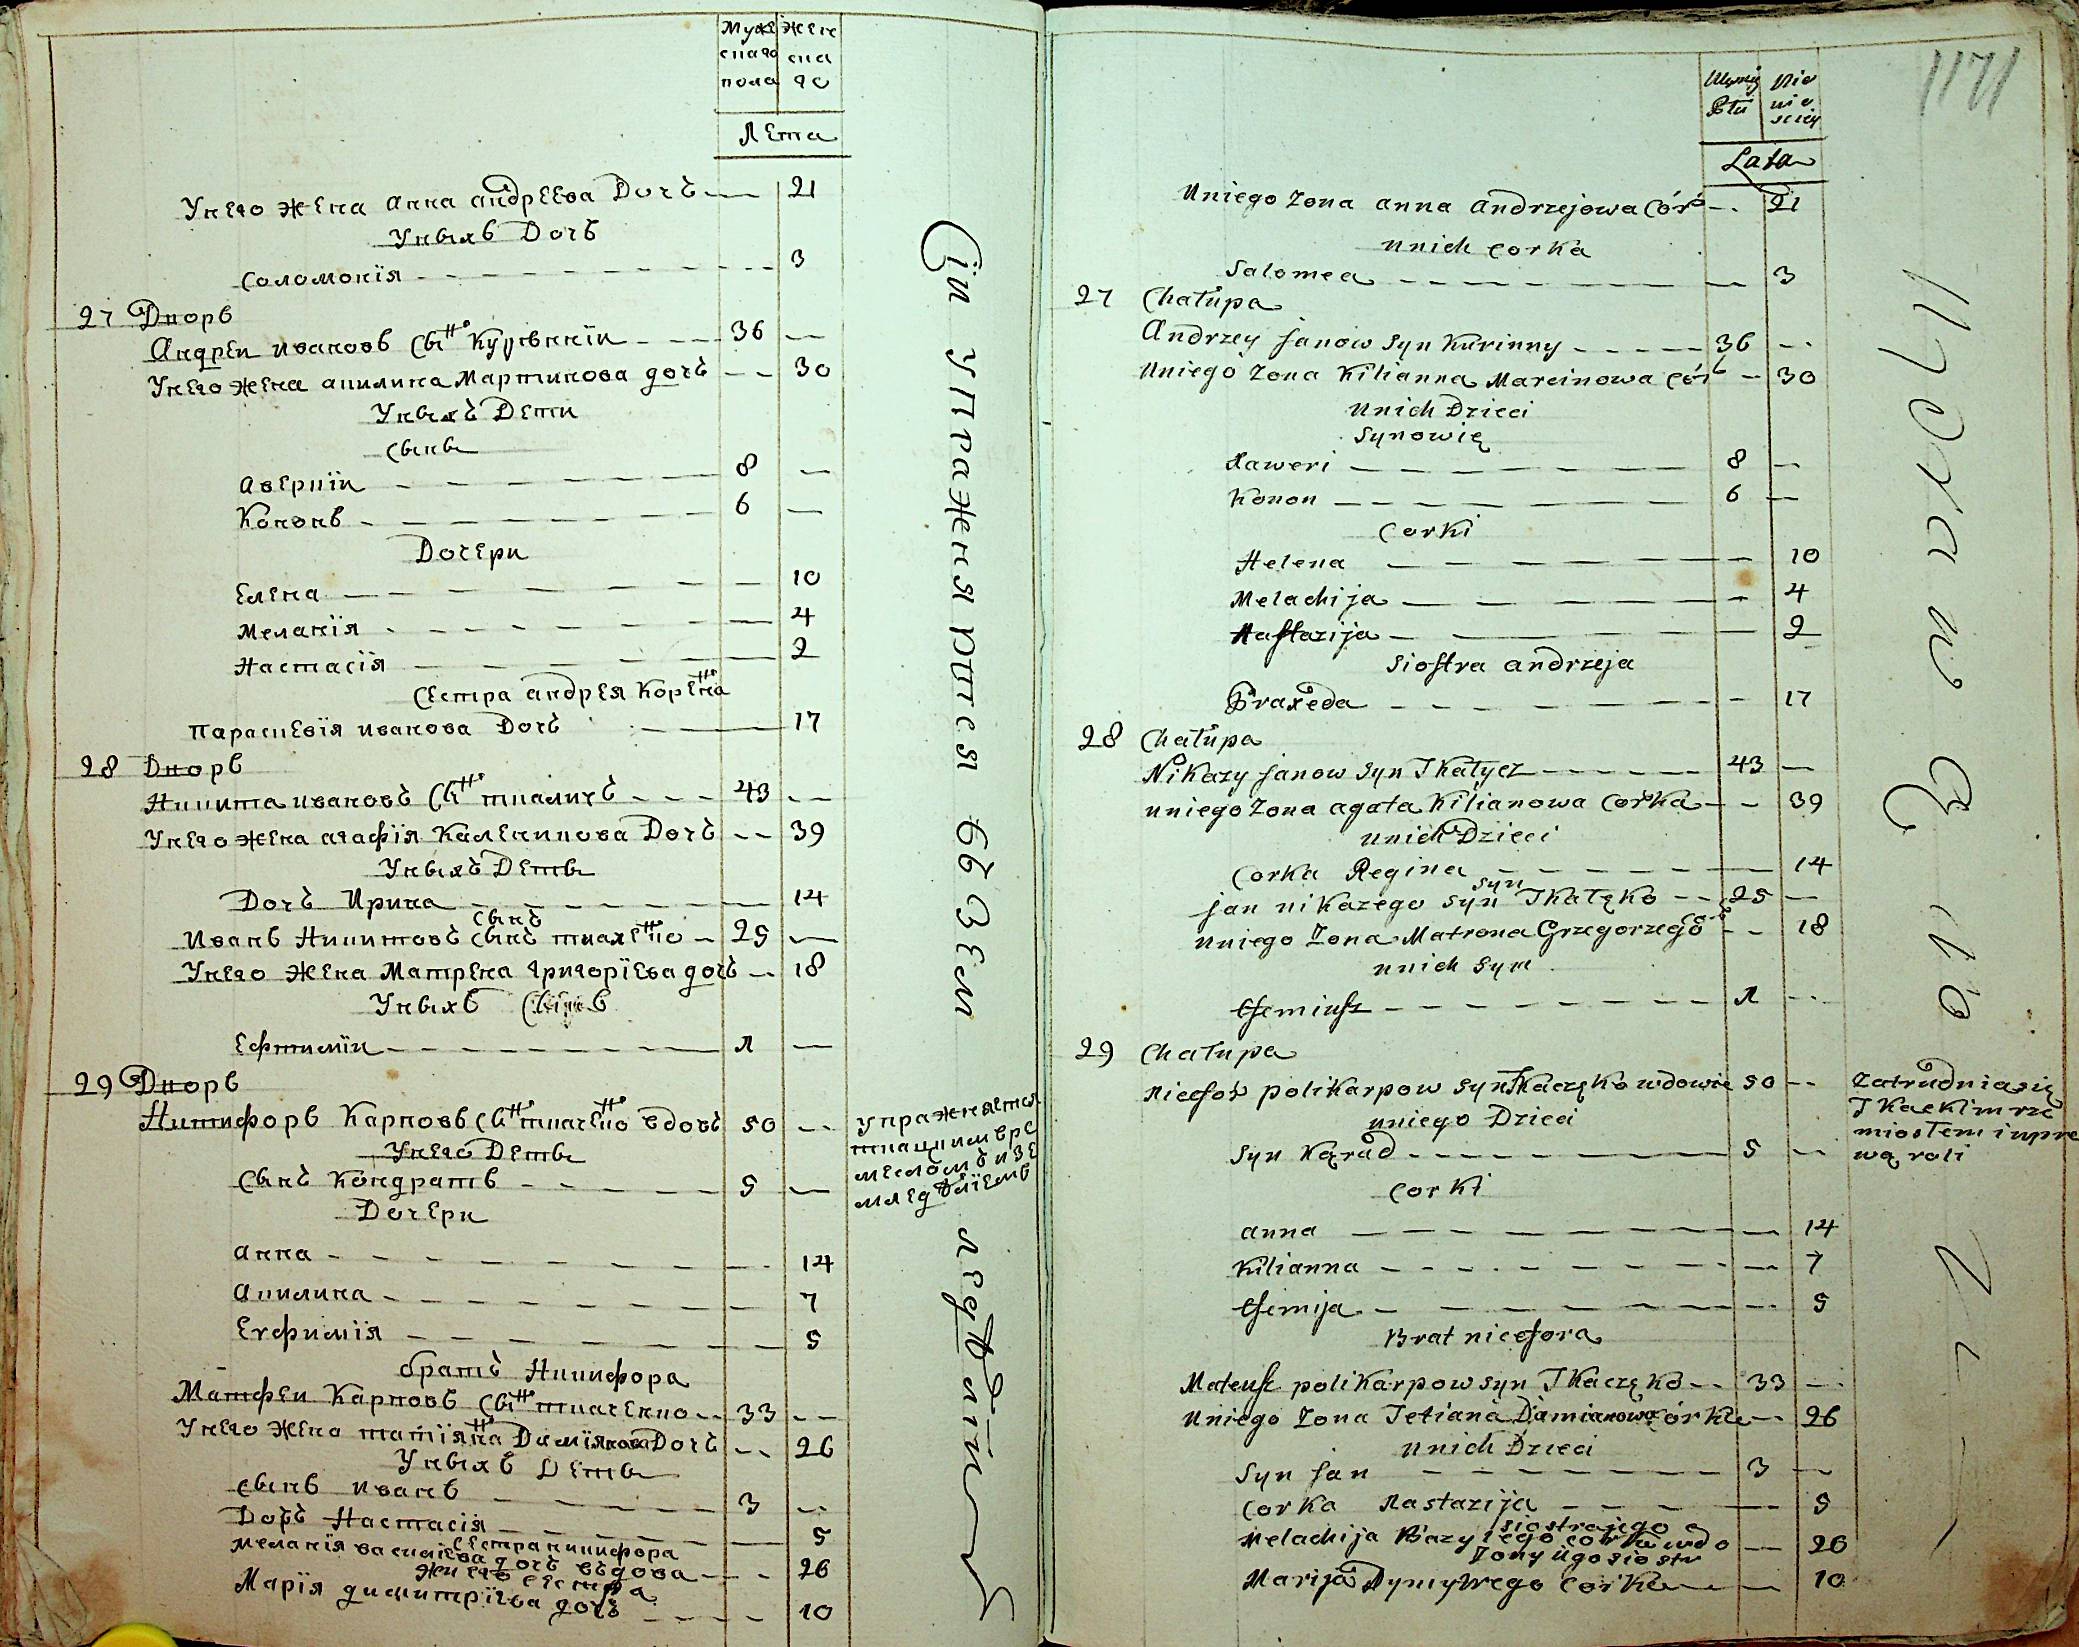 Мужескаго пола
Женскаго
Лета
У него жена Анна Андреева Дочъ 21
У ныхъ Дочъ
Соломонїя 3
27 Дворъ
Андреи Ивановъ Сынъ
У него жена Акилина Мартинова дочъ 30
У ныхъ Дети
Сыны
Аверкїи 8
Кононъ 6
Дочери
Елена 10
Меланїя 4
Настасїя 2
Сестра Андрея
Параскевїя Иванова Дочъ 17
28 Дворъ
Никита Ивановъ Сынъ Ткаличъ 43
У него жена Агафїя Каленикова Дочъ 39
У ныхъ Деты
Дочъ Ирина 14
Сынъ
Иванъ Никитовъ Сынъ 25
У него жена Матрена Григорїева дочъ 18
У ныхъ Сынъ
Ефтимїи 1
29 Дворъ
Никифоръ Карповъ Сынъ Ткаченко вдовъ 50
У него Деты
Сынъ Кондратъ 5
Дочери
Анна 14
Акилина 7
Евфимїя 5
братъ Никифора
Матфеи Карповъ Сынъ Ткаченко 33
У него жена Татїяна Дамїянова Дочъ 26
У ныхъ Деты
Сынъ Иванъ 3
Дочъ Настасїя 5
Сестра Никифора
Меланїя Василїева дочъ вдова 26
жени его сестра
Марїя Димитрїева дочъ 10
Сїи упражняются въ земледѣлїи
упражняется
ткацкимъ ре
месломъ и зе
мледѣлїемъ
1171
Męzkiey Płci
Nie wie sciey
Lata
U niego Zona Anna Andrzejowa Cór 21
U nich Corka
Salomea 3
27 Chałupa
Andrzey Janow Syn Kurinny 36
U niego Zona Kilianna Marcinowa Cór 30
U nich Dzieci
Synowię
Xaweri 8
Konon 6
Corki
Helena 10
Melachija 4
Nastazija 2
Siostra Andrzeja
Praxeda 17
28 Chałupa
Nikazy Janow Syn Tkałycz 43
U niego Zona Agata Kilianowa Corka 39
U nich Dzieci
Corka Regina 14
Syn
Jan Nikazego Syn Tkatęko 25
U niego Zona Matrona Grzegorzego Cór 18
U nich Syn
Efemiusz 1
29 Chałupa
Nicefor Polikarpow Syn Tkaczęko wdowie 50
U niego Dzieci
Syn Kąrad 5
Corki
Anna 14
Kilianna 7
Efemija 5
Brat Nicefora
Mateusz Polikarpow Syn Tkaczęko 33
U niego Zona Tetiana Damianowa Córka 26
U nich Dzieci
Syn Jan 3
Corka Nastazija 5
siostra jego
Melachija Bazylego córka wdo 26
Zony iego siostr
Marija Dymytrego Corka 10
zatrudnia się
Tkackim rze
miosłem i upra
wą roli